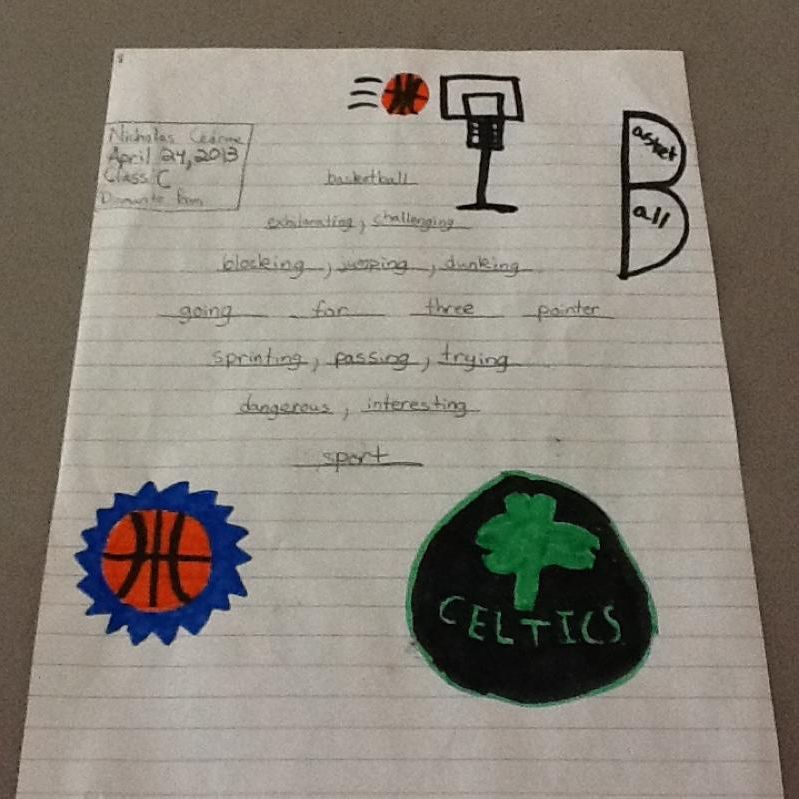 Nicholas
April 24, 2013
Class C
basketball
exhilarating, challenging
blocking, jumping, dunking
going for three pointer
sprinting, passing, trying
dangerous, interesting
sport
Basket
Ball
CELTICS